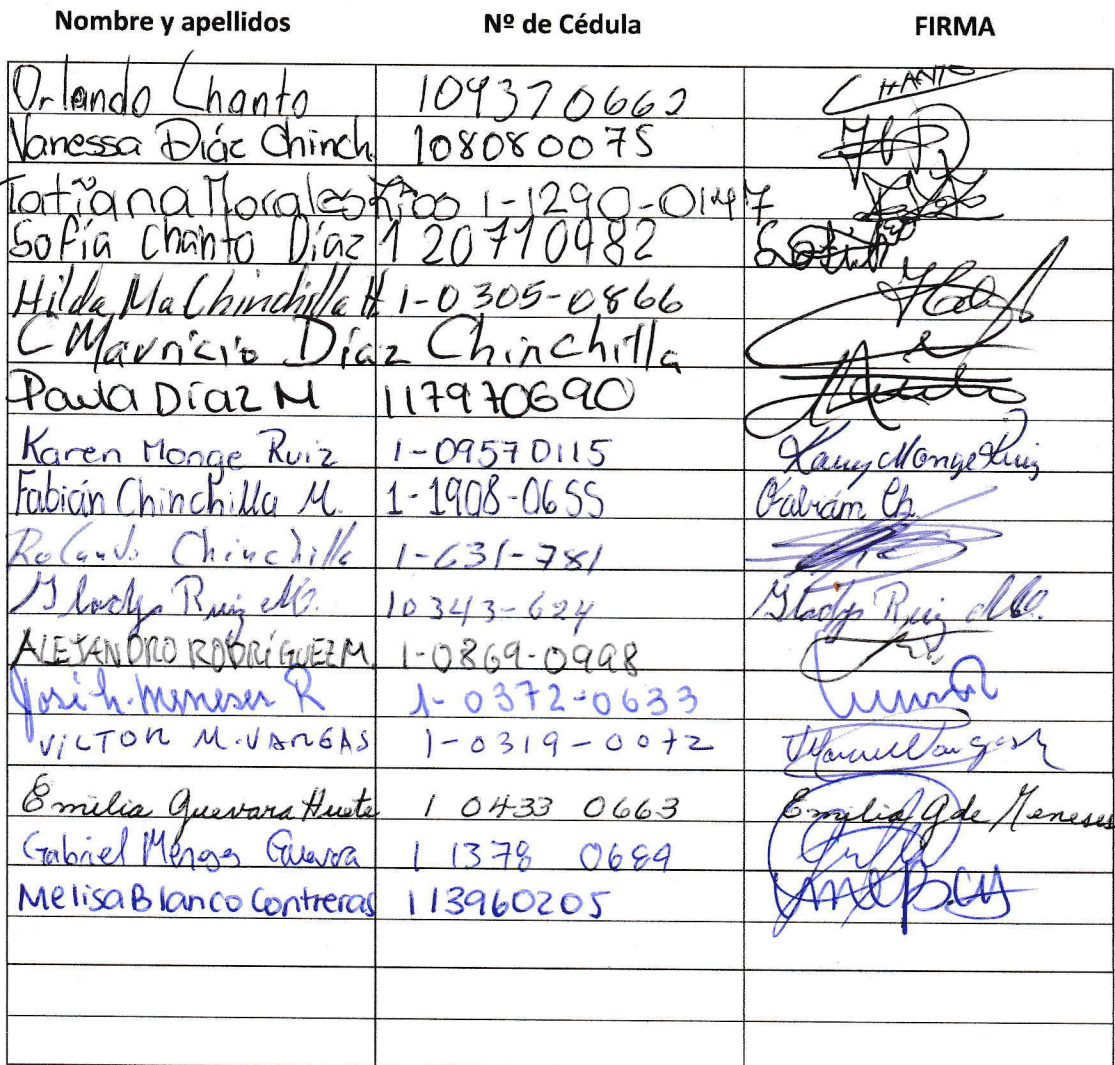 Nombre y apellidos Nº de Cédula FIRMA
Orlando Chanto 109370662 CHANTO
Vanessa Díaz Chinch. 108080075
Tatiana Morales Ríos 1-1290-0147
Sofía Chanto Díaz 1 20710982 Sofía
Hilda Ma Chinchilla H 1-0305-0866
C Mauricio Díaz Chinchilla
Paula Díaz M 117970690
Karen Monge Ruiz 1-09570115 Karen Monge Ruiz
Fabián Chinchilla M. 1-1908-0655 Fabián Ch.
Rolando Chinchilla 1-631-781
Gladys Ruiz Mo. 10343-624 Gladys Ruiz Mo.
ALEJANDRO RODRÍGUEZ M. 1-0869-0998
José h. Meneses R 1-0372-0633
VÍCTOR M. VARGAS 1-0319-0072
Emilia Guevara Huete 1 0433 0663 Emilia G de Meneses
Gabriel Meneses Guevara 1 1378 0689
Melisa Blanco Contreras 113960205